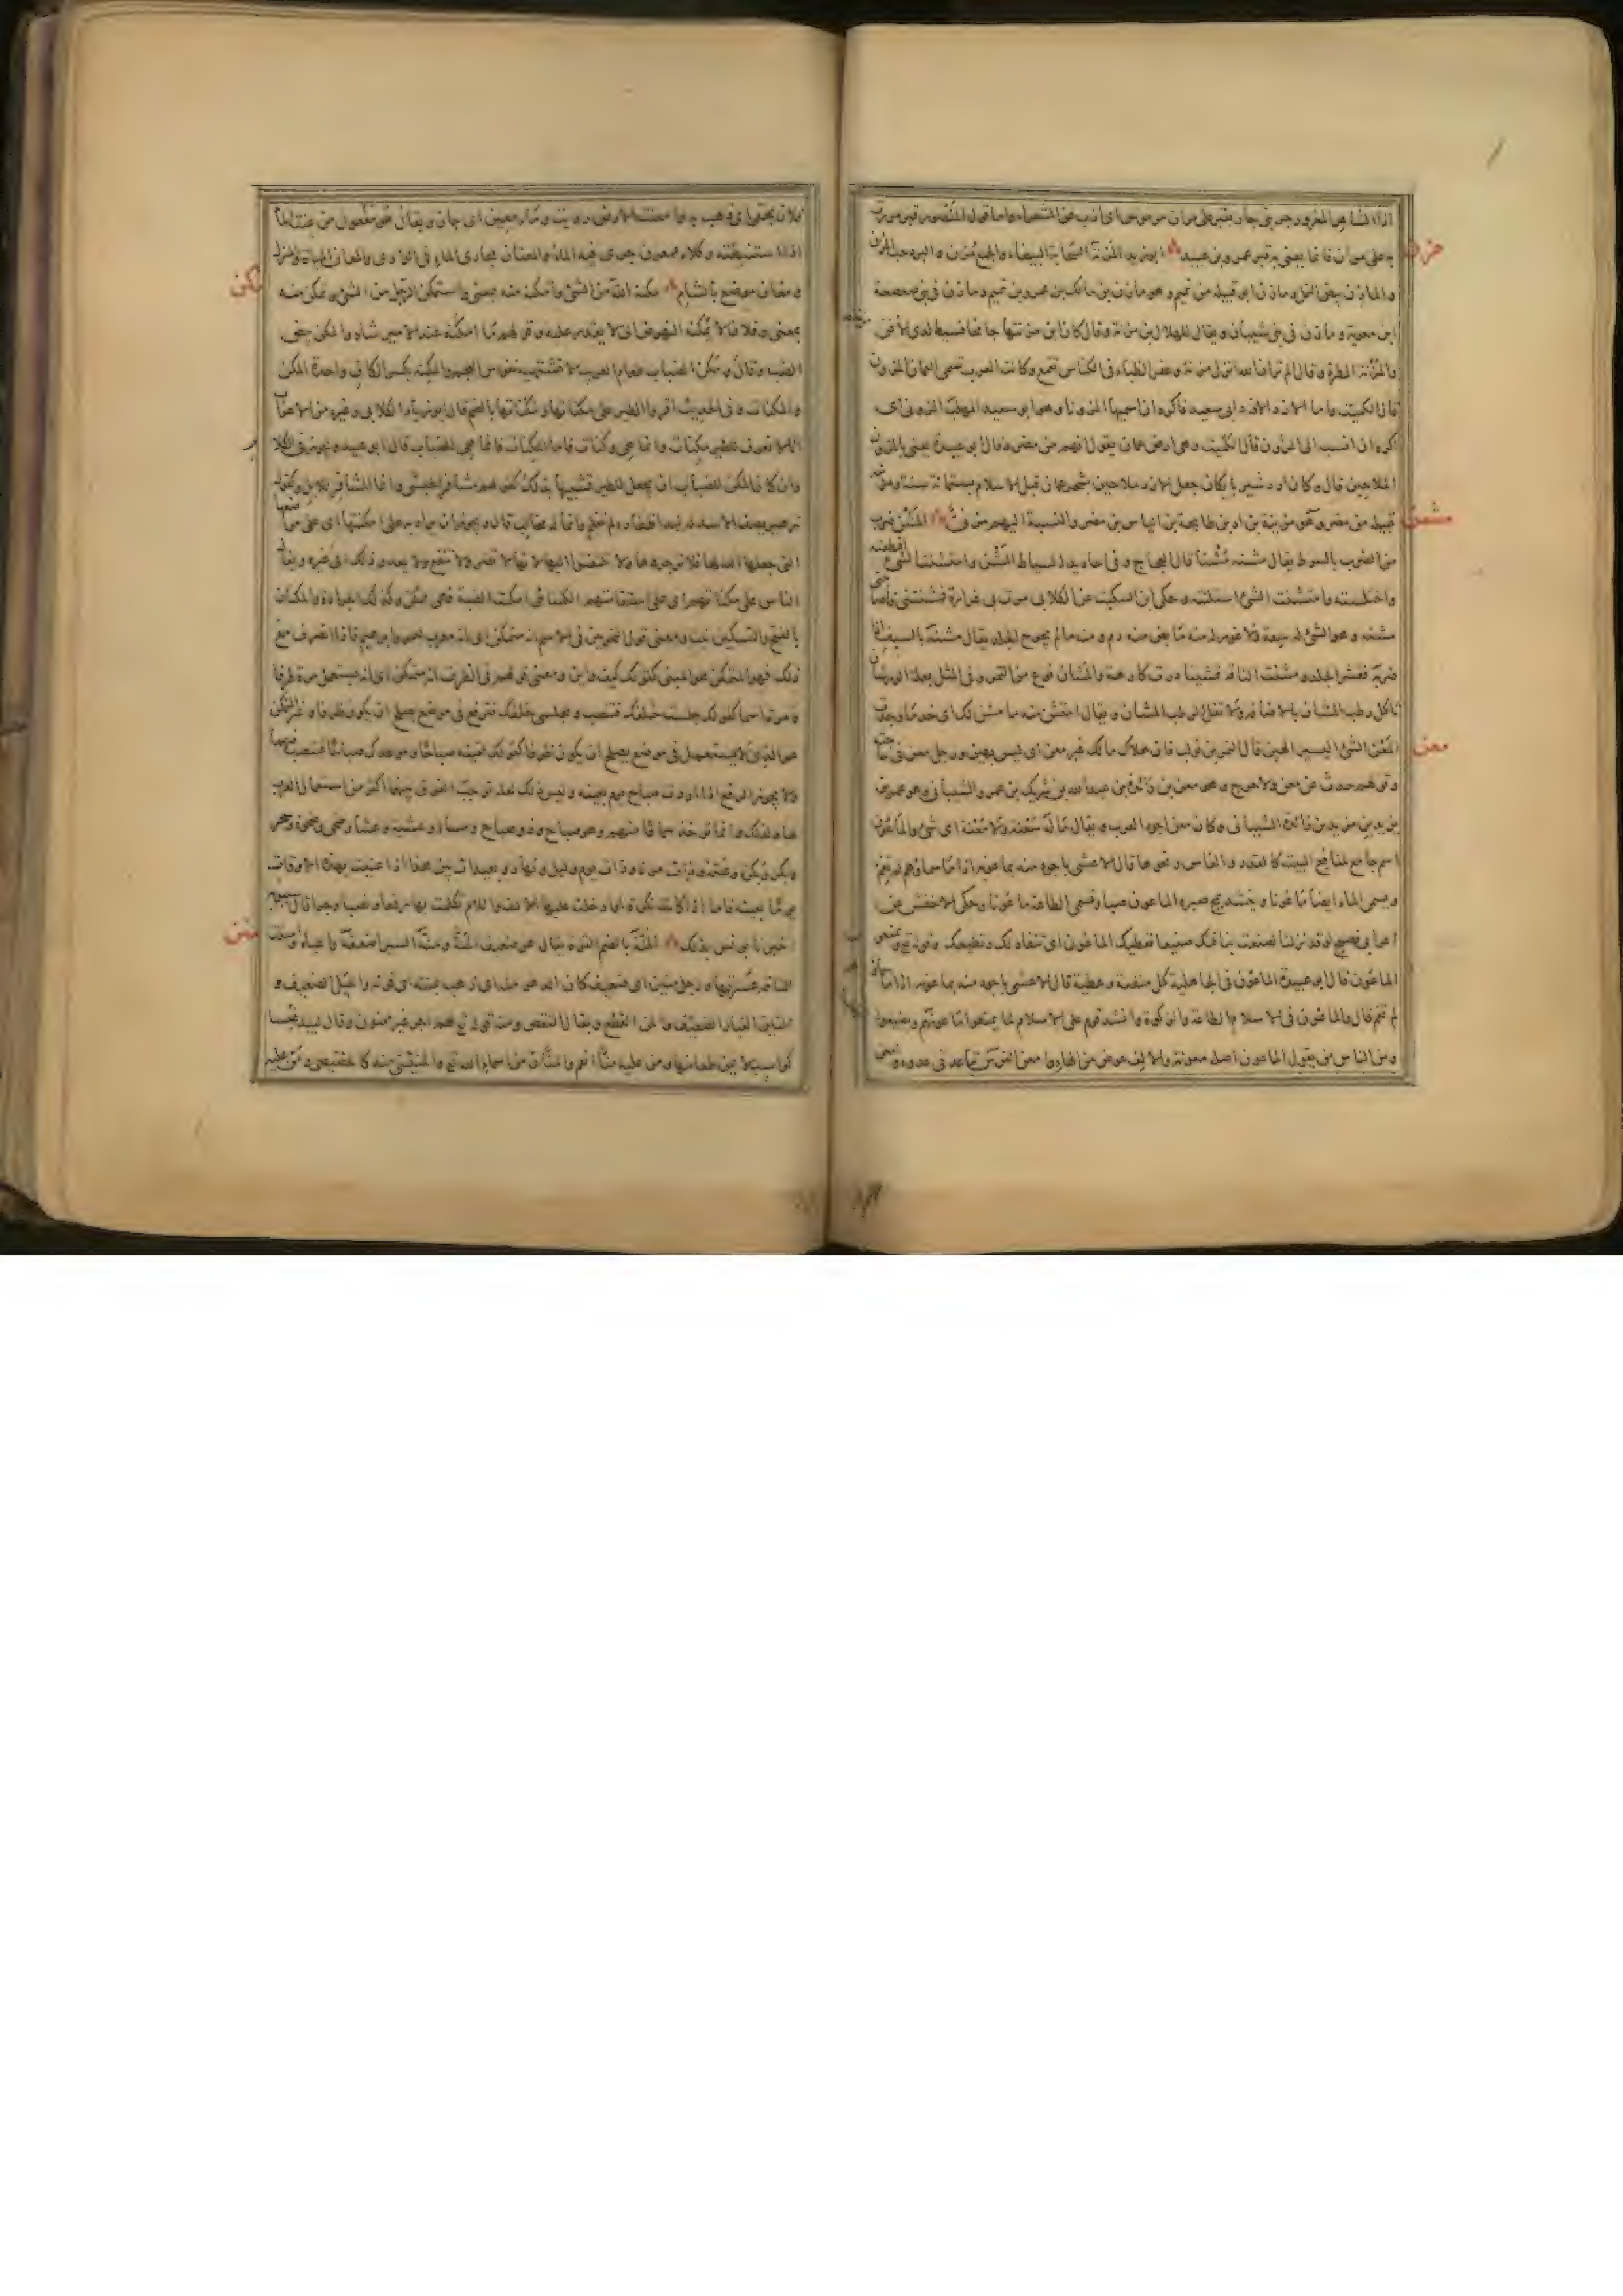 به على مران فانما يعنى به قبر عمرو بن عبيد ابو زيد المزنة السحابة البيضاء والجمع مزن والبرد حب المزن
مزن
والمازن بيض النمل ومازن ابو قبيلة من تميم وهو مازن بن مالك بن عمرو بن تميم ومازن فى بنى صعصعة
ابن معوية ومازن فى بنى شيبان ويقال للهلال ابن مزنة وقال كان ابن مزنتها جانحا فسيط لدى الافق
والمزنة المطرة وقال الم تر ان الله انزل مزنة وعفر الظباء فى الكناس تقمع وكانت العرب تسمى عمان المزون
قال الكميت واما الازد ازد ابى سعيد فاكره ان اسميها المزونا وهو ابو سعيد المهلب المزونى اى
اكره ان انسب الى المزون قال الكميت وهى ارض عمان يقول هم من مضر وقال ابو عبيدة يعنى بالمزون
الملاحين قال وكان اردشير بابكان جعل الازد ملاحين بشحر عمان قبل الاسلام بستمائة سنة ومزينة
قبيلة من مضر وهو مزينة بن اد بن طابخة بن الياس بن مضر والنسبة اليهم مزنى المشن ضرب
مشن
من الضرب بالسوط يقال مشنه مشنا قال العجاج وفى اخاديد السياط المشن وامتشنت الشئ اقتطعته
واختلسته وامتشنت الشئ استلته وحكى ابن السكيت عن الكلابى مرت بى غرارة فمشنتنى واصابتنى
مشنة وهو الشئ له سعة ولا غور له منه ما بض منه دم ومنه ما لم يجرح الجلد يقال مشنه بالسيف اذا
ضربه فقشر الجلد ومشنت الناقة تمشينا درت كارهة والمشان نوع من التمر وفى المثل بعلة الورشان
تاكل رطب المشان بالاضافة ولا تقل الرطب المشان ويقال امتشن منه ما مشن لك اى خذ ما وجدت
المعن الشئ اليسير الهين قال النمر بن تولب فان هلاك مالك غير معن اى ليس بهين ورجل معن فى حاجته
معن
وقولهم حدث عن معن ولا حرج وهو معن بن زائدة بن عبد الله بن شريك بن عمرو الشيبانى وهو عم
يزيد بن مزيد بن زائدة الشيبانى وكان معن اجود العرب ويقال ما له سعنة ولا معنة اى شئ والماعون
اسم جامع لمنافع البيت كالقدر والفاس ونحوها قال الاعشى باجود منه بماعونه اذا ما سماؤهم لم تغم
ويسمى الماء ايضا ماعونا وينشد يمج صبيره الماعون صبا وتسمى الطاعة ماعونا وحكى الاخفش عن
اعرابى فصيح لو قد نزلنا لصنعت بناقتك صنيعا تعطيك الماعون اى تنقاد لك وتطيعك وقوله تع ويمنعون
الماعون قال ابو عبيدة الماعون فى الجاهلية كل منفعة وعطية قال الاعشى باجود منه بماعونه اذا ما
لم تغم قال والماعون فى الاسلام الطاعة والزكوة وانشد قوم على الاسلام لما يمنعوا ماعونهم ويضيعوا
ومن الناس من يقول الماعون اصله معونة والالف عوض من الهاء وامعن الفرس تباعد فى عدوه
فلان بحقى اى ذهب به ومعنت الارض رويت وماء معين اى جار ويقال هو مفعول من عنت الماء
اذا استنبطته وكلاء ممعون جرى فيه الماء والمعنان مجارى الماء فى الوادى والمعان المباءة والمنزل
ومعان موضع بالشام مكنه الله من الشئ وامكنه منه بمعنى واستمكن الرجل من الشئ وتمكن منه
مكن
بمعنى وفلان لا يمكنه النهوض اى لا يقدر عليه وقولهم ما امكنه عند الامير شاذ والمكن بيض
الضب وقال ومكن الضباب طعام العريب لا تشتهيه نفوس العجم والمكنة بكسر الكاف واحدة المكن
والمكنات وفى الحديث اقروا الطير على مكناتها ومكناتها بالضم قال ابو زياد الكلابى وغيره من الاعراب
انا لا نعرف للطير مكنات وانما هى وكنات فاما المكنات فانما هى للضباب قال ابو عبيد ويجوز فى الكلام
وان كان المكن للضباب ان يجعل للطير تشبيها بذلك كقولهم مشافر الحبش وانما المشافر للابل وكقول
زهير يصف الاسد له لبد اظفاره لم تقلم وانما له مخالب قال ويجوز ان يراد به على امكنتها اى على مواضعها
التى جعلها الله لها فلا تزجروها ولا تلتفتوا اليها لانها لا تضر ولا تنفع ولا يعدو ذلك الى غيره ويقال
الناس على مكناتهم اى على استقامتهم الكسائى امكنت الضبة فهى مكون وكذلك الجرادة والمكنان
بالفتح والتسكين نبت ومعنى قول النحويين فى الاسم انه متمكن اى انه معرب كعمر وابراهيم فاذا انصرف مع
ذلك فهو المتمكن الامكن كزيد وعمرو وغير المتمكن هو المبنى كقولك كيف واين ومعنى قولهم فى الظرف انه متمكن اى انه يستعمل مرة ظرفا
ومرة اسما كقولك جلست خلفك فتنصب ومجلسى خلفك فترفع فى موضع يصلح ان يكون ظرفا وغير المتمكن
هو الذى لا يستعمل فى موضع يصلح ان يكون ظرفا الا ظرفا كقولك لقيته صباحا وموعدك صباحا فتنصب فيهما
ولا يجوز الرفع اذا اردت صباح يوم بعينه وليس ذلك لعلة توجب الفرق بينهما اكثر من استعمال العرب
لها كذلك وانما توخذ سماعا منهم وهو صباح وذو صباح ومساء وعشية وعشاء وضحى وضحوة وسحر
وبكر وبكرة وعتمة وذات مرة وذات يوم وليل ونهار وبعيدات بين هذا اذا عنيت بهذه الاوقات
يوما بعينه فاما اذا كانت نكرة او ادخلت عليها الالف واللام تكلمت بها رفعا ونصبا وجرا قال سيبويه
اخبرنا يونس بذلك المنة بالضم القوة يقال هو ضعيف المنة ومنه السير اضعفه واعياه ومننت
منن
الناقة حسرتها ورجل منين اى ضعيف كان الدهر منه اى ذهب بمنته اى قوته والمنين الحبل الضعيف و
المنين الغبار الضعيف والمن القطع ويقال النقص ومنه قوله تع لهم اجر غير ممنون وقال لبيد غبسا
كواسب لا يمن طعامها ومن عليه منا انعم والمنان من اسماء الله تع والمنينى منه كالخصيصى ومن عليه